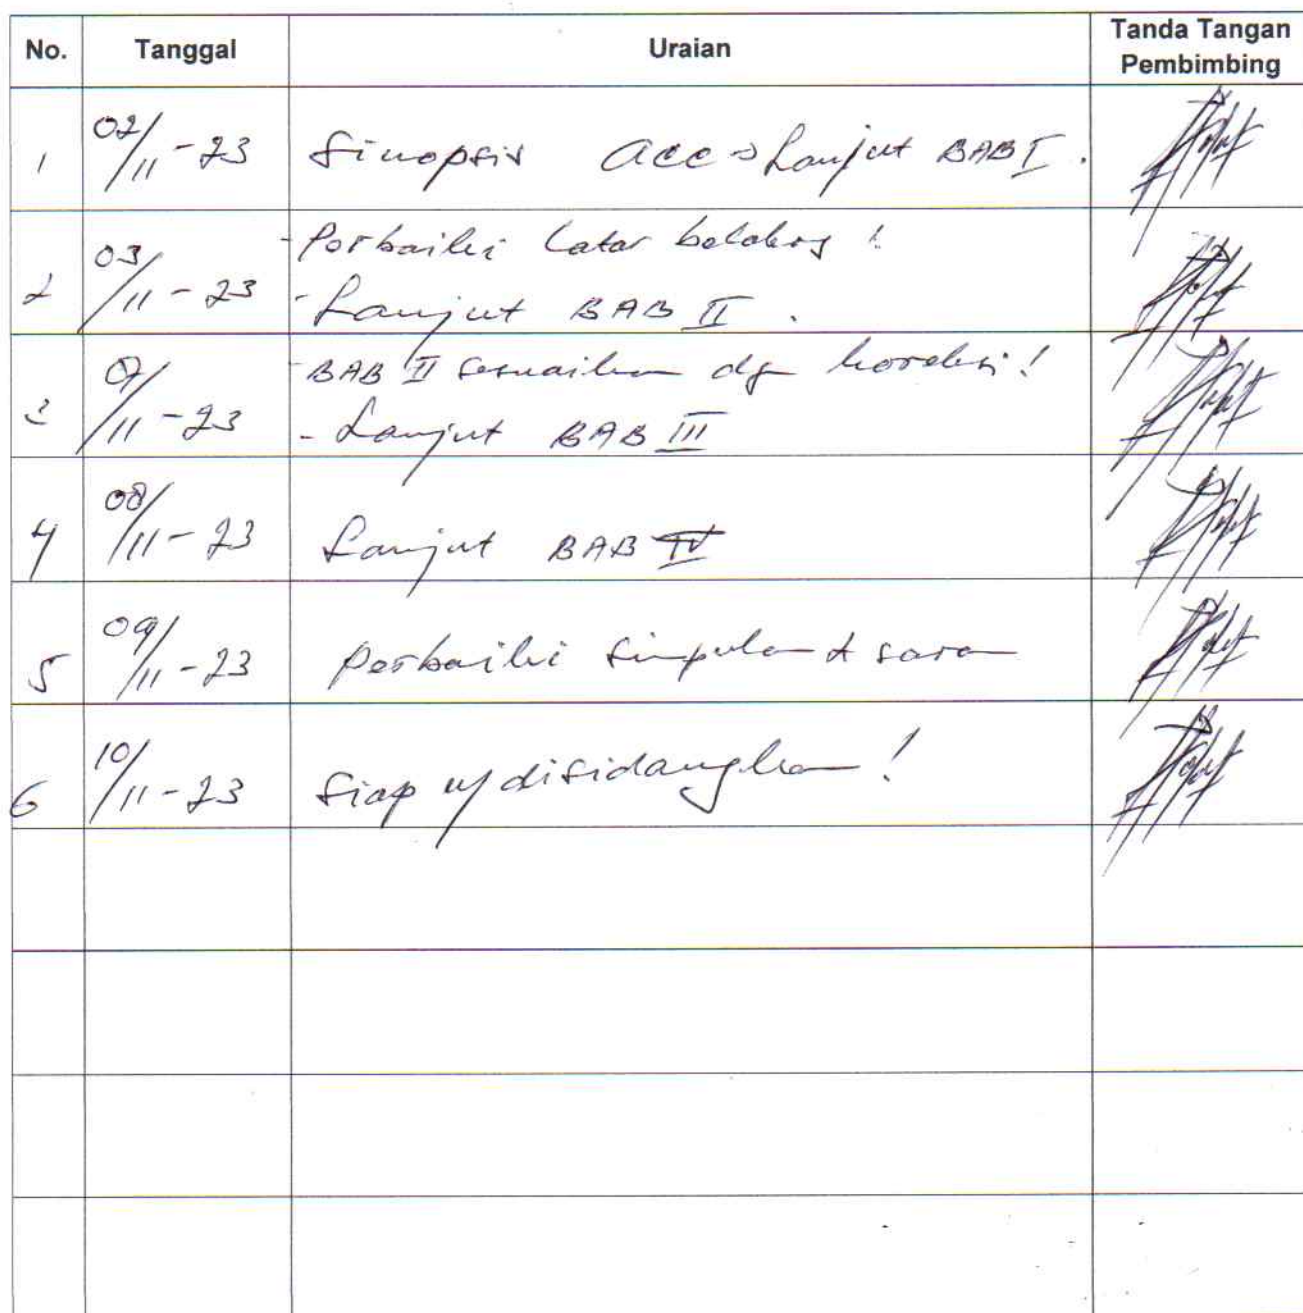 No. Tanggal Uraian Tanda Tangan Pembimbing
1 02/11-23 Sinopsis acc → Lanjut BAB I.
2 03/11-23 - Perbaiki latar belakang!
- Lanjut BAB II.
3 07/11-23 - BAB II sesuaikan dgn koreksi!
- Lanjut BAB III
4 08/11-23 Lanjut BAB IV
5 09/11-23 Perbaiki simpulan & saran
6 10/11-23 Siap u/ disidangkan!